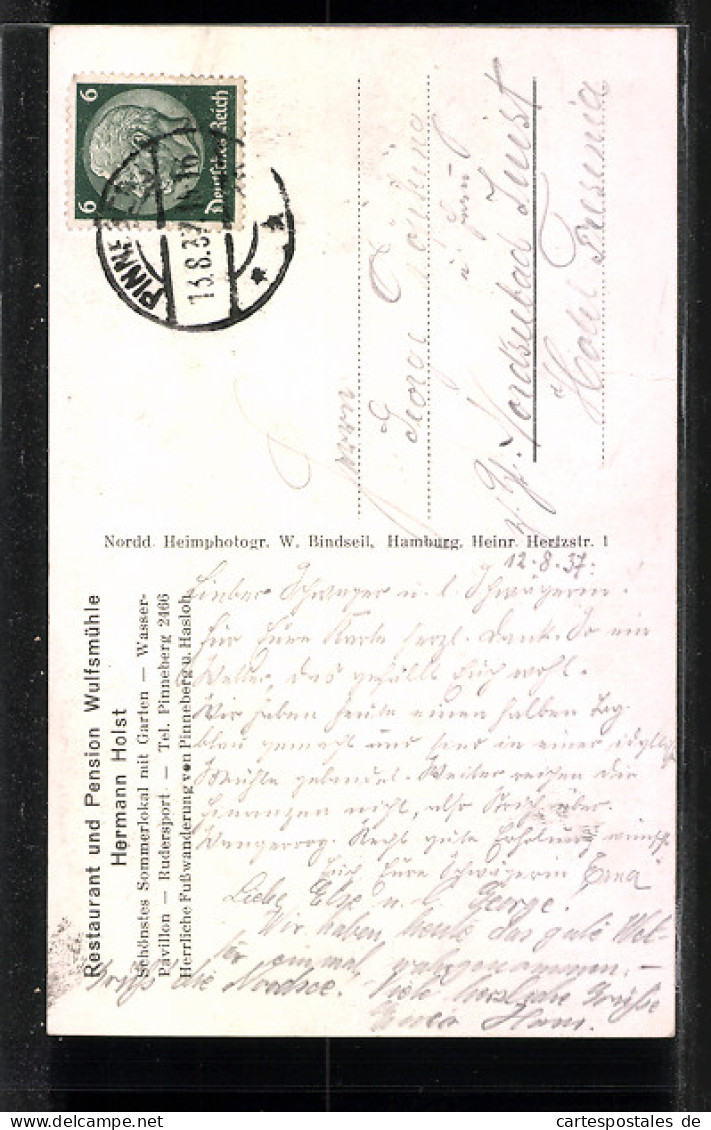 6
6
Deutsches Reich
PINNEBERG
13.8.37.
Herrn
George
u. Frau
z. Zt. Nordseebad Juist
Hotel Fresenia
Nordd. Heimphotogr. W. Bindseil, Hamburg, Heinr. Hertzstr. 1
Restaurant und Pension Wulfsmühle
Hermann Holst
Schönstes Sommerlokal mit Garten — Wasser-
Pavillon — Rudersport — Tel. Pinneberg 2466
Herrliche Fußwanderung von Pinneberg u. Hasloh
12.8.37.
Lieber Schwager u. l. Schwägerin.
Für Eure Karte herzl. Dank. So ein
Wetter, das gefällt Euch wohl.
Wir haben heute einen halben Tag
blau gemacht und sind in einer idyll.
Mühle gelandet. Weiter reichen die
Finanzen nicht, also
Wangeroog. Recht gute Erholung wünscht
Euch Eure Schwägerin Erna
Liebe Else u. l. George.
Wir haben heute das gute Wet-
ter einmal wahrgenommen. —
Grüß die Nordsee! Viele herzliche Grüße
Euer Hans.
cartespostales de